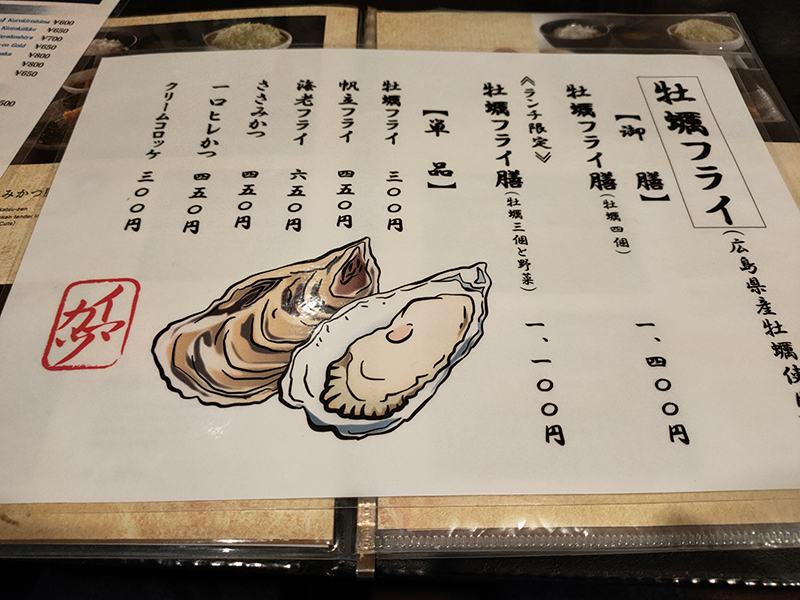 牡蠣フライ
（広島県産牡蠣使用
【御膳】
牡蠣フライ膳（牡蠣四個） 一、四〇〇円
《ランチ限定》
牡蠣フライ膳（牡蠣三個と野菜） 一、一〇〇円
【単品】
牡蠣フライ 三〇〇円
帆立フライ 四五〇円
海老フライ 六五〇円
ささみかつ 四五〇円
一口ヒレかつ 四五〇円
クリームコロッケ 三〇〇円
Kurokirishima ¥600
¥650
¥700
on Gold ¥650
¥800
¥800
¥650
みかつ